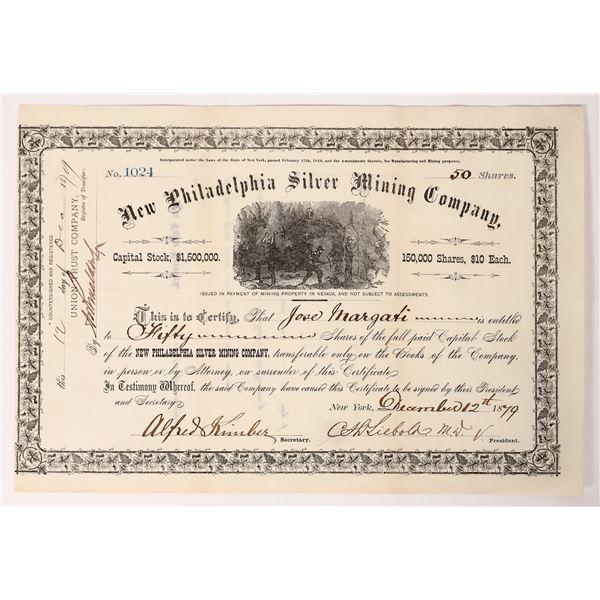 Incorporated under the Laws of the State of New York, passed February 17th, 1848, and the Amendments thereto, for Manufacturing and Mining purposes.
No. 1024
50 Shares.
New Philadelphia Silver Mining Company,
Capital Stock, $1,500,000.
150,000 Shares, $10 Each.
ISSUED IN PAYMENT OF MINING PROPERTY IN NEVADA, AND NOT SUBJECT TO ASSESSMENTS.
This is to Certify, That Jose Margati is entitled
to Fifty Shares of the full paid Capital Stock
of the NEW PHILADELPHIA SILVER MINING COMPANY, transferable only on the Books of the Company,
in person or by Attorney, on surrender of this Certificate.
In Testimony Whereof, the said Company have caused this Certificate to be signed by their President
and Secretary.
New York, December 12th 1879
Alfred Kimber
Secretary.
President.
COUNTERSIGNED AND REGISTERED
this 12 day of Dec 1879
UNION TRUST COMPANY,
Register of Transfer.
By